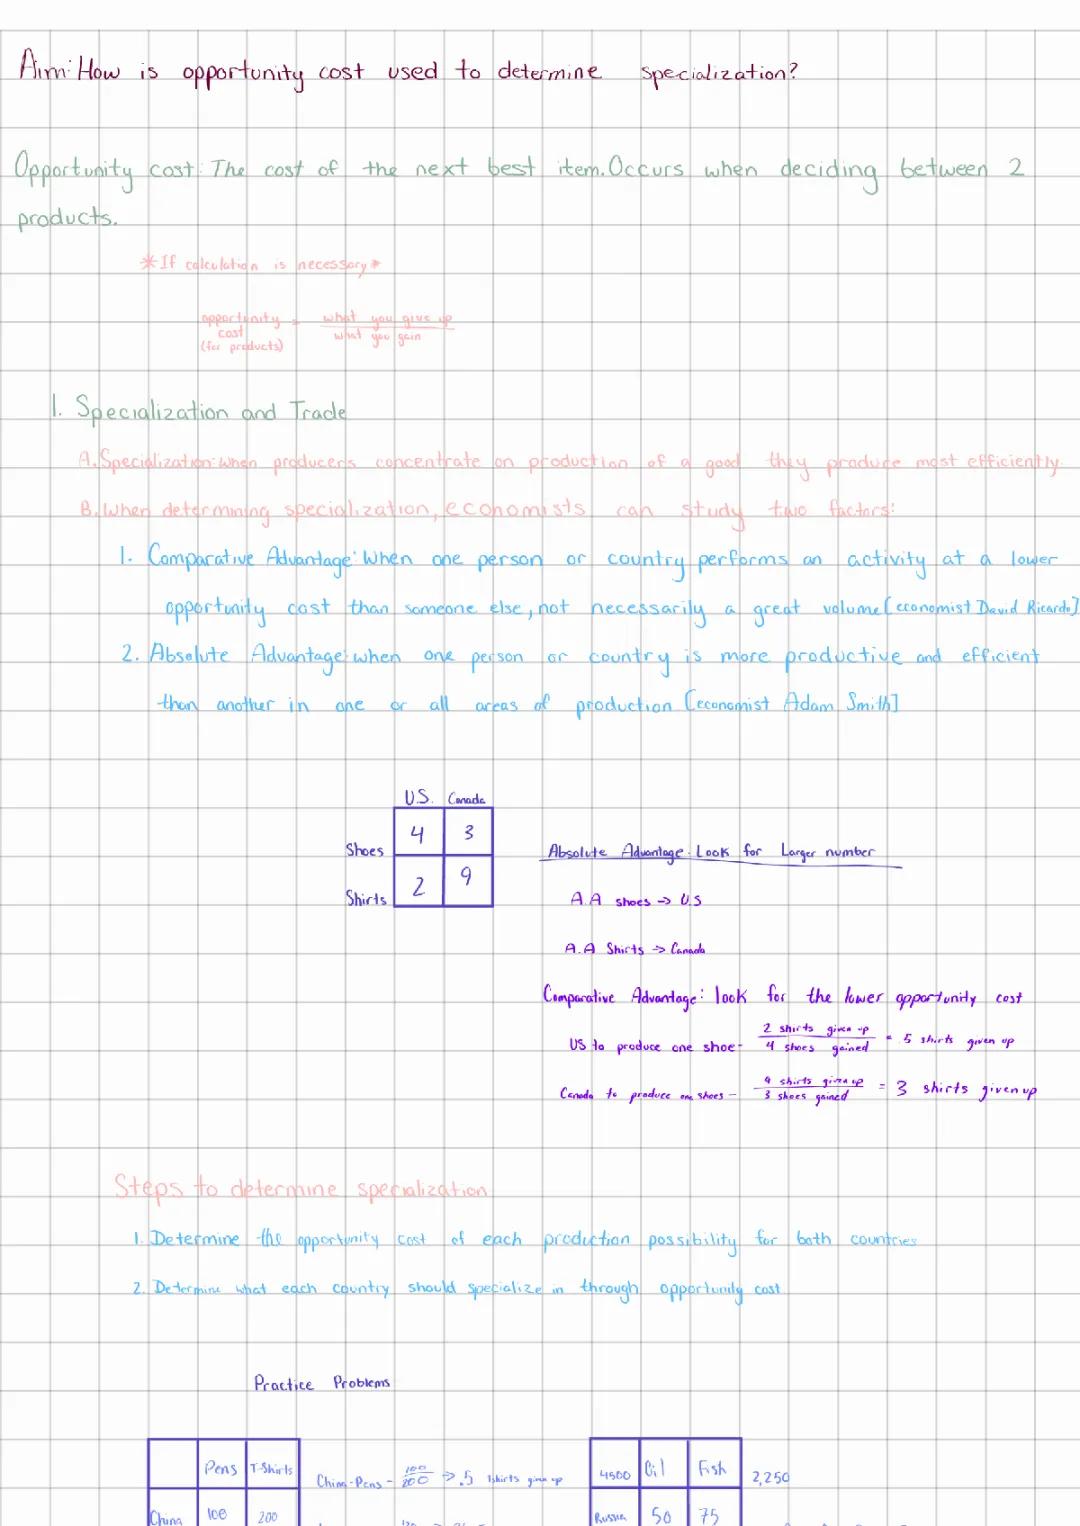 Aim: How is opportunity cost used to determine specialization?
Opportunity cost: The cost of the next best item. Occurs when deciding between 2
products.
*If calculation is necessary*
opportunity = what you give up
cost what you gain
(for products)
1. Specialization and Trade
A. Specialization: when producers concentrate on production of a good they produce most efficiently
B. When determining specialization, economists can study two factors:
1. Comparative Advantage: When one person or country performs an activity at a lower
opportunity cost than someone else, not necessarily a great volume [economist David Ricardo]
2. Absolute Advantage: when one person or country is more productive and efficient
than another in one or all areas of production [economist Adam Smith]
U.S. Canada
Shoes 4 3
Shirts 2 9
Absolute Advantage: Look for Larger number
A.A shoes -> U.S
A.A Shirts -> Canada
Comparative Advantage: look for the lower opportunity cost
US to produce one shoe - 2 shirts given up / 4 shoes gained = .5 shirts given up
Canada to produce one shoes - 9 shirts given up / 3 shoes gained = 3 shirts given up
Steps to determine specialization
1. Determine the opportunity cost of each production possibility for both countries
2. Determine what each country should specialize in through opportunity cost
Practice Problems
Pens T-Shirts
China 100 200
China-Pens - 100/200 -> .5 tshirts given up
4500 Oil Fish 2,250
Russia 50 75